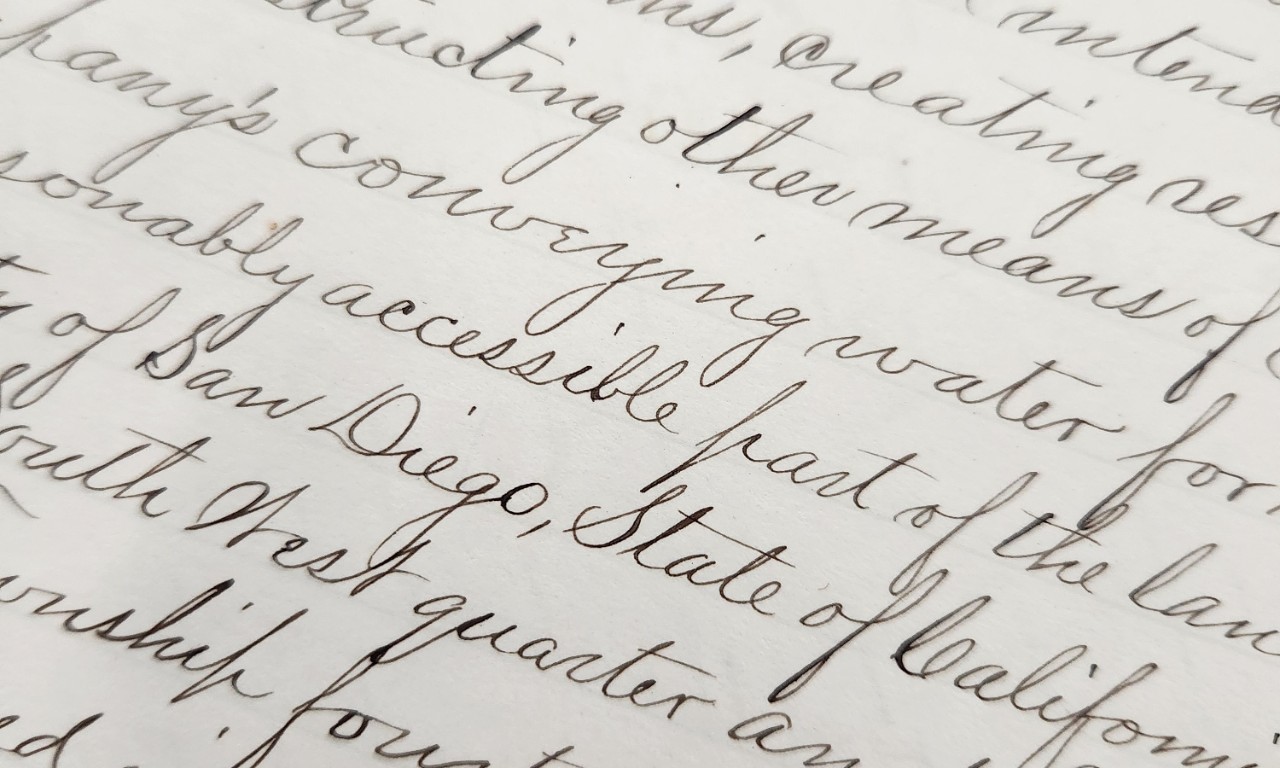 intend
ms, creating res
structing other means of
pany's conveying water for
sonably accessible part of the lan
ty of San Diego, State of Californi
outh West quarter an
wnship fourt
ed